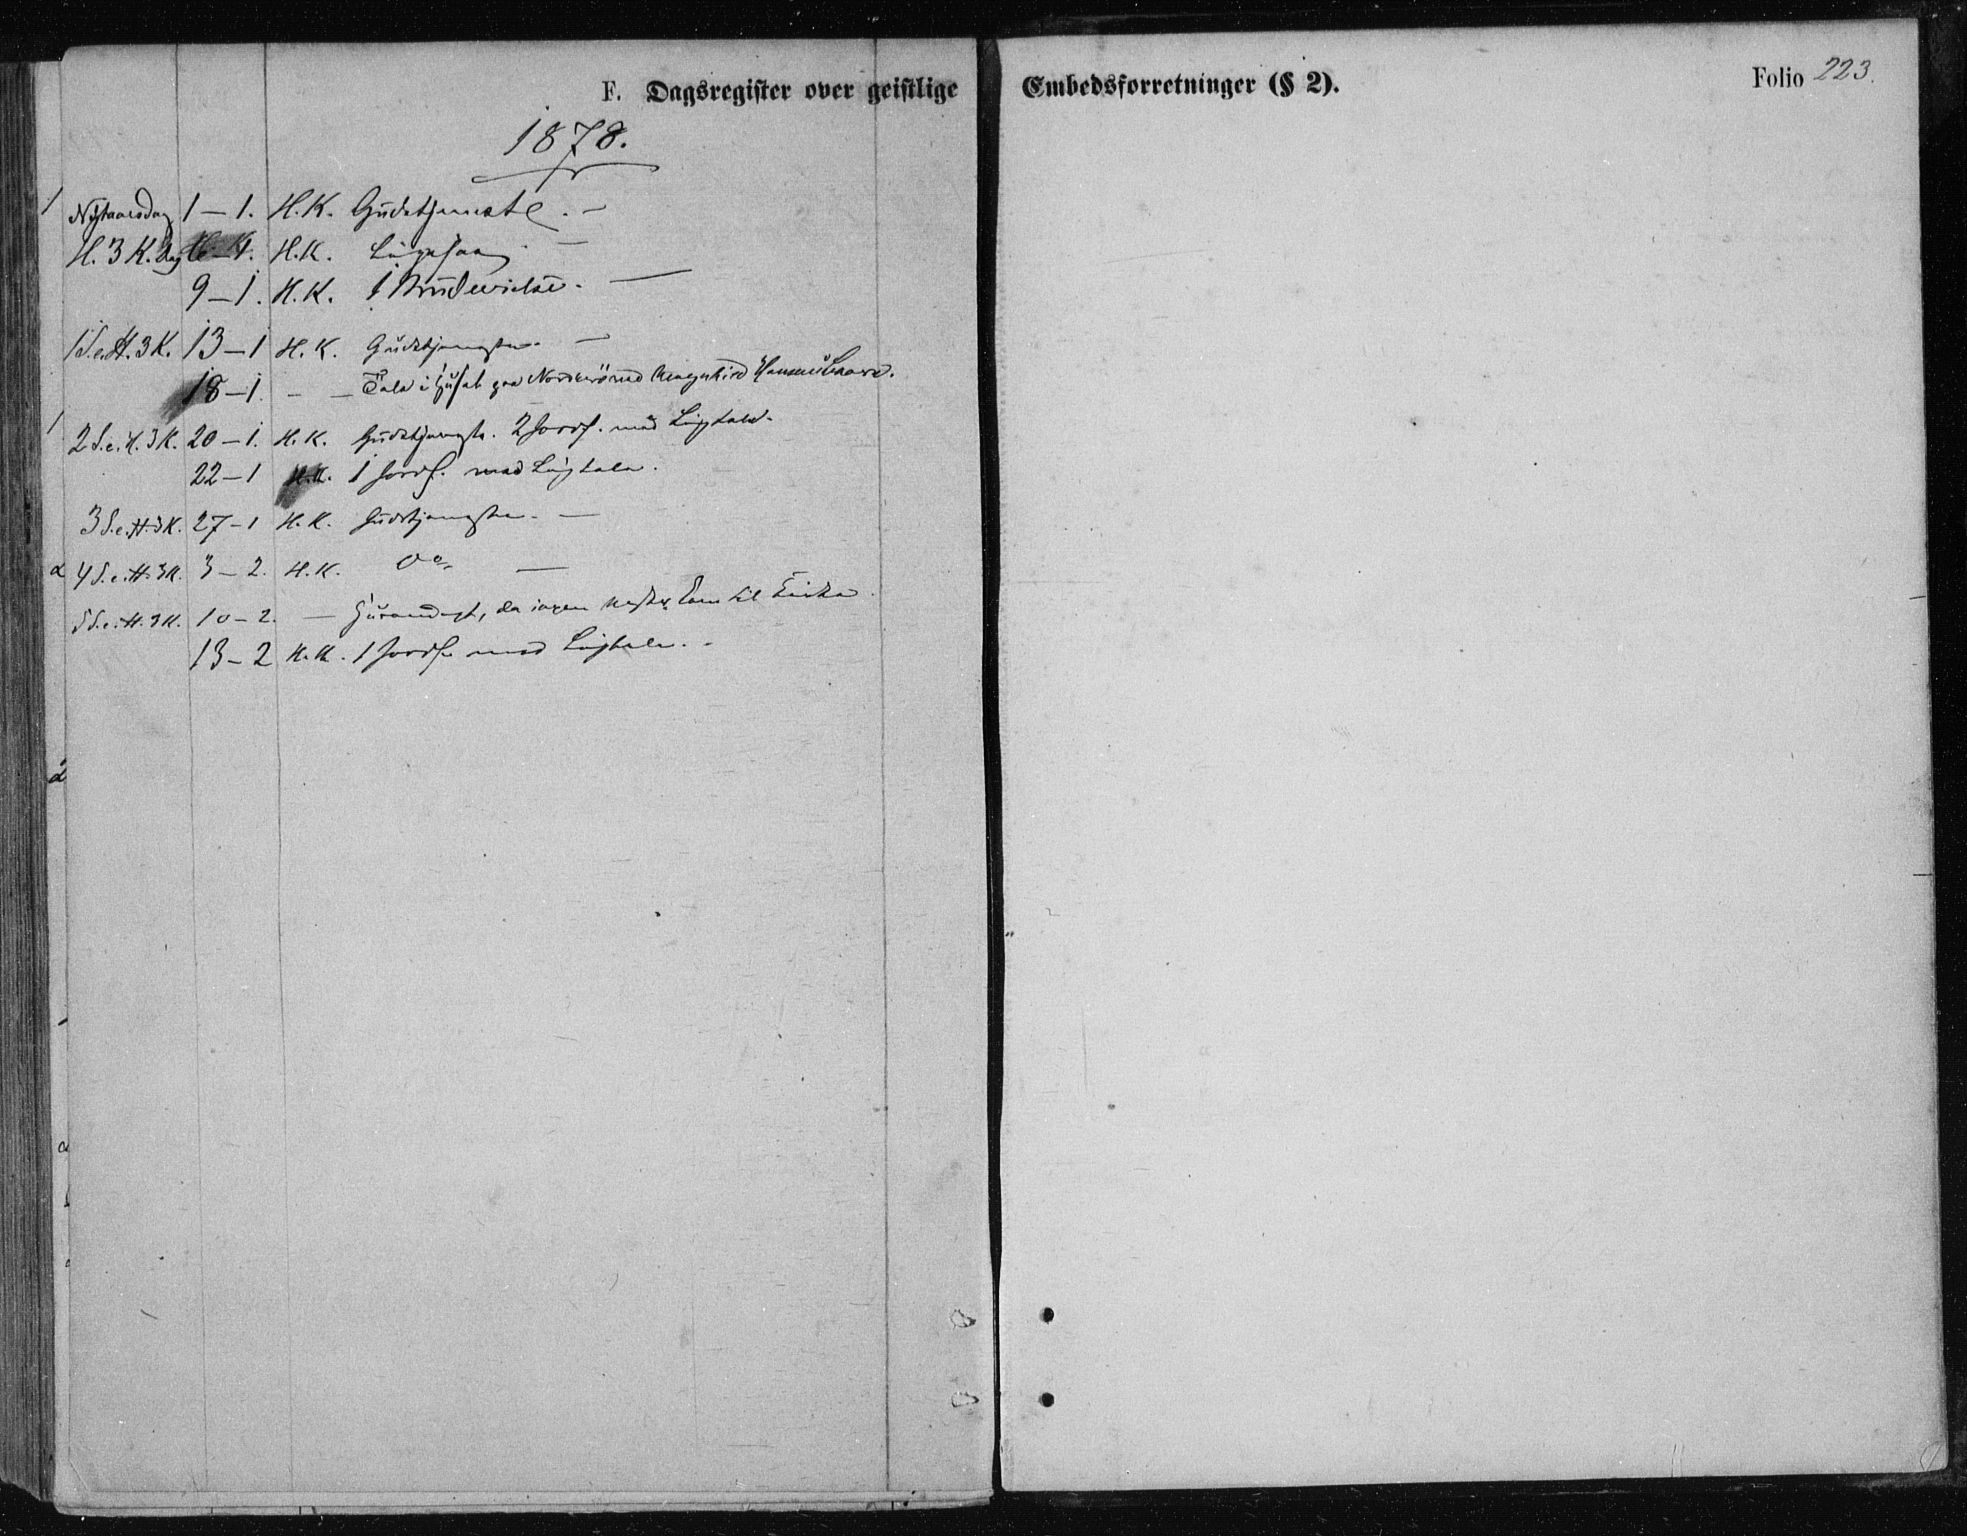 F. Dagsregister over geistlige Embedsforretninger (§ 2).
Folio 223.
1878.
Nytaarsdag 1–1. H.K. Gudstjeneste. –
H. 3 K. dag H.K. –
9–1. H.K. 1 Brudevielse. –
1 S.e.H.3K. 13–1 H.K. Gudstjeneste. –
18–1. – – Tale i Huset paa
2 S.e.H.3K. 20–1. H.K. Gudstjeneste. 2 Jordf. med Ligtale.
22–1 H.K. 1 Jordf. med Ligtale.
3 S.e.H.3K. 27–1 H.K. Gudstjeneste. –
4 S.e.H.3K. 3–2. H.K. Do –
5 S.e.H.3K. 10–2. – Husandagt, da ingen kom til Kirke.
13–2 H.K. 1 Jordf. med Ligtale. –